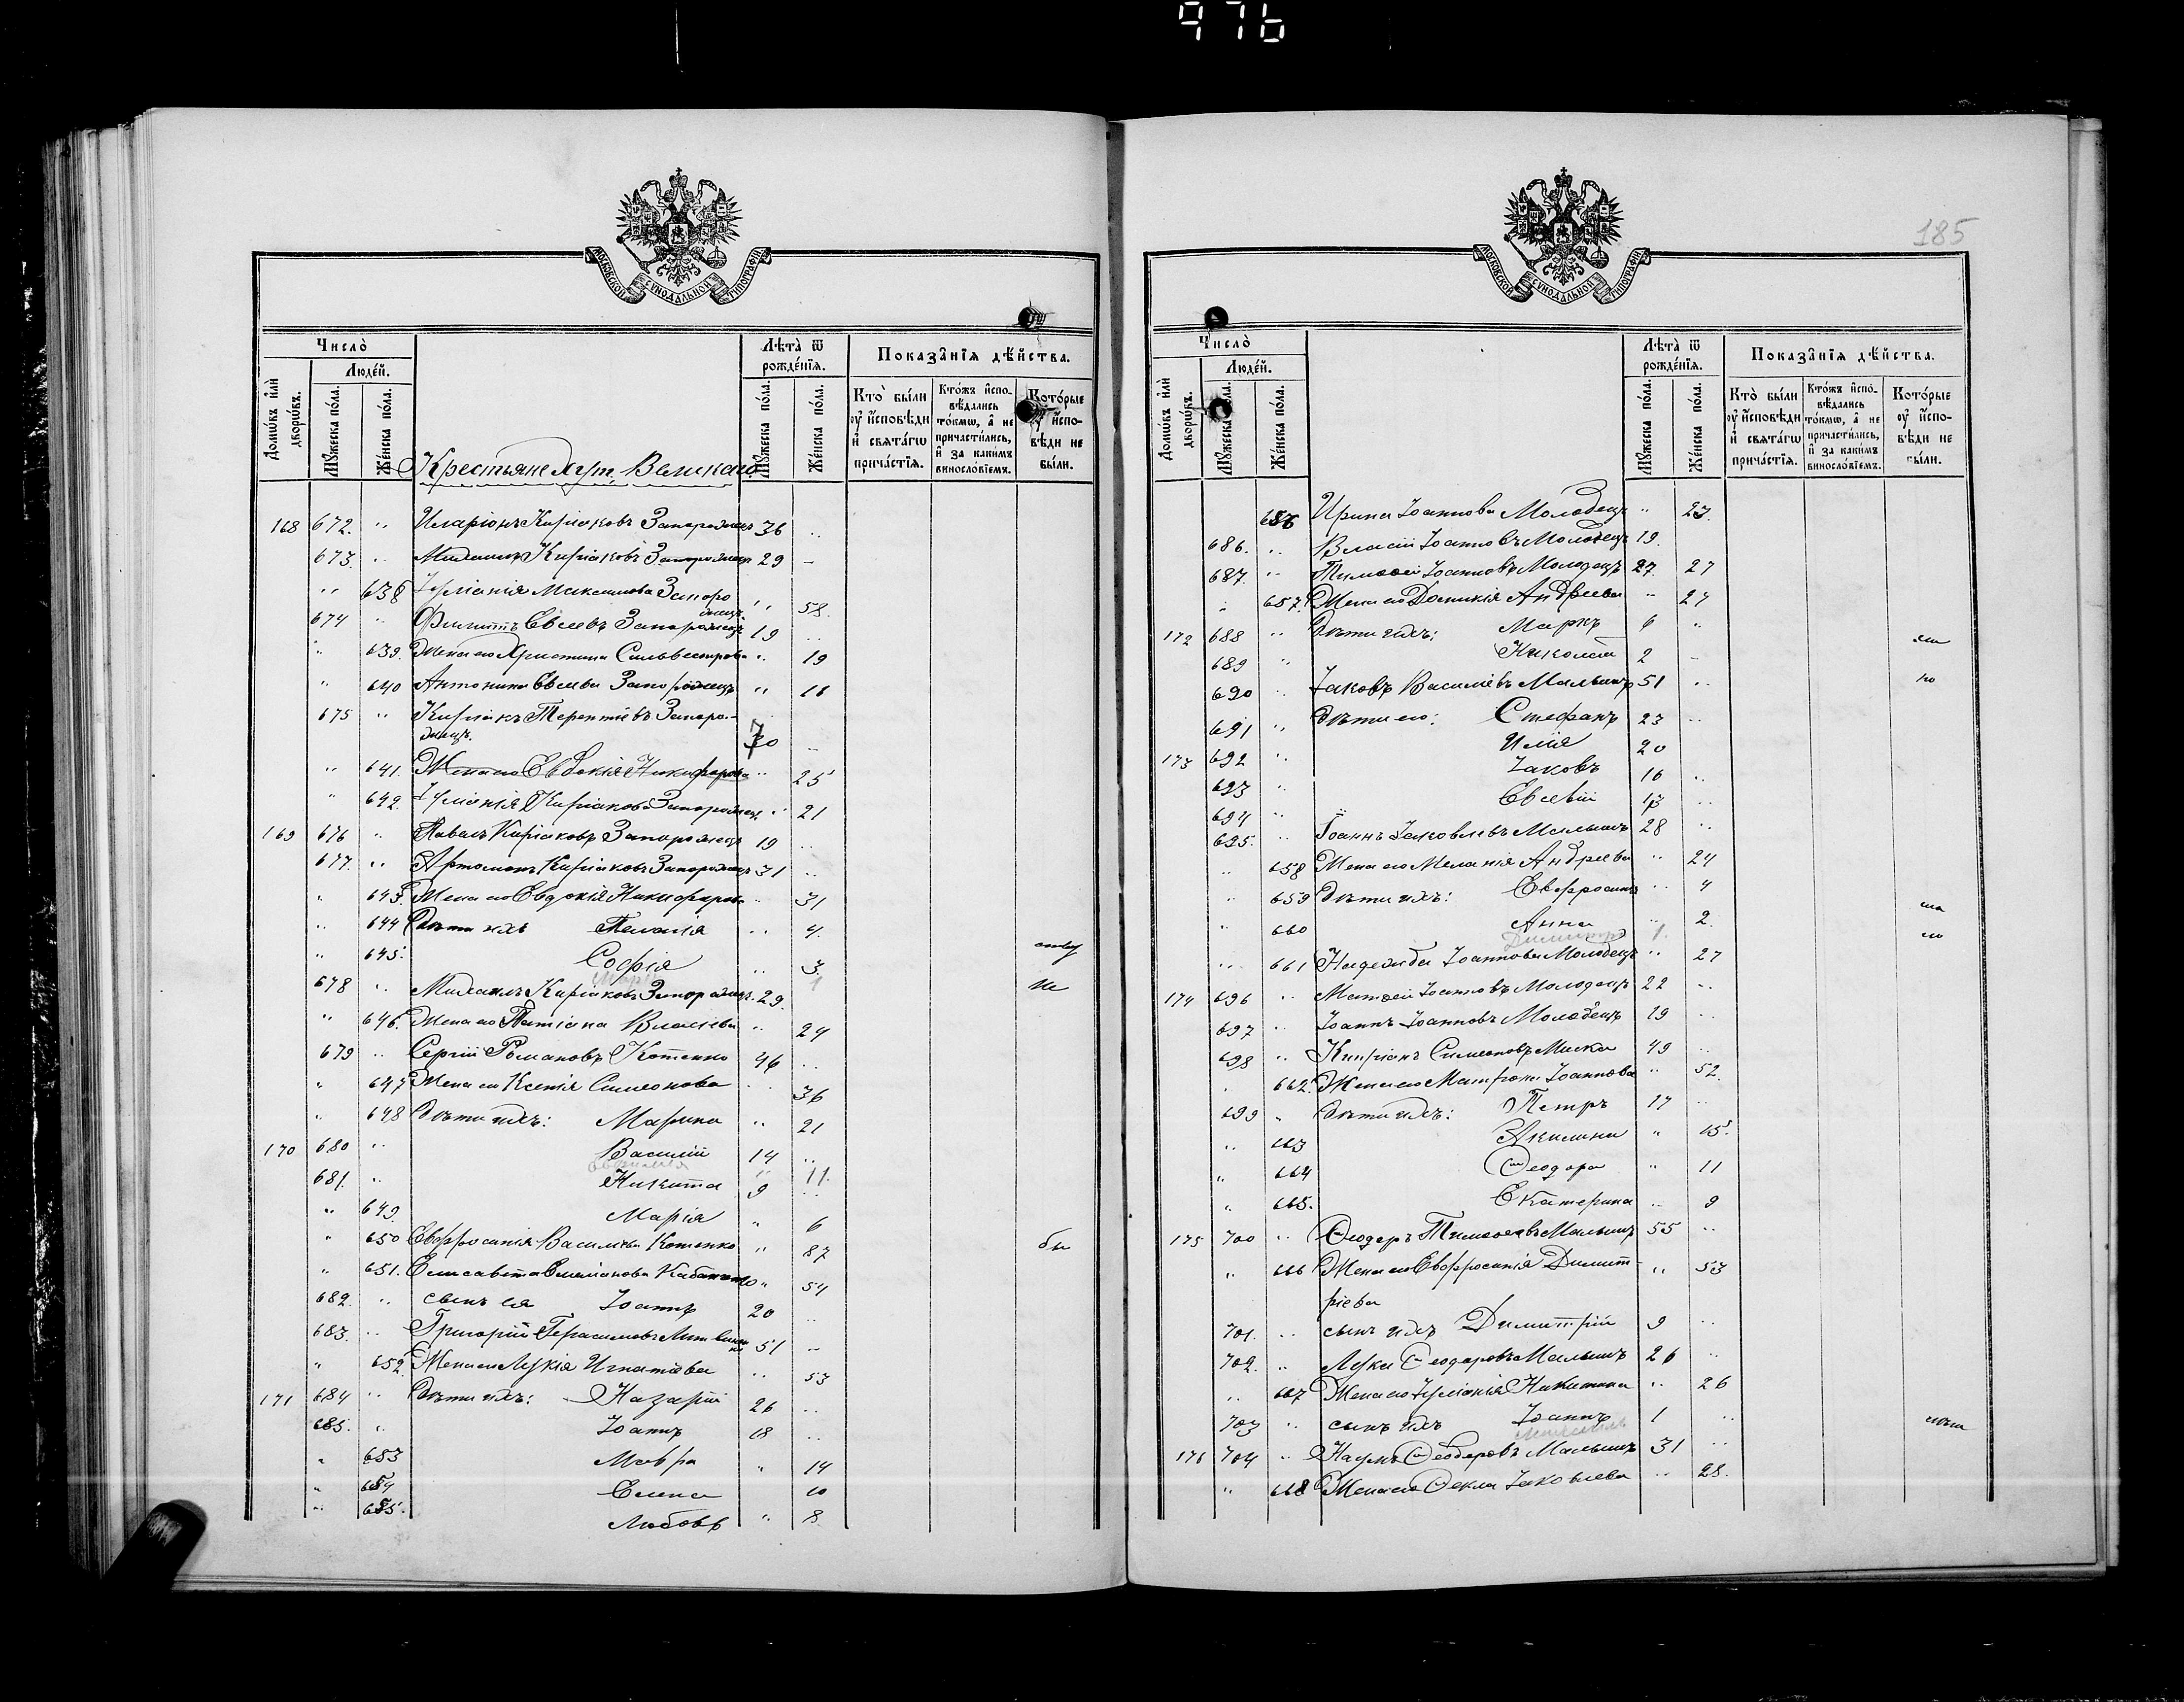 976
185
МОСКОВСКОЙ СУНОДАЛЬНОЙ ТИПОГРАФІИ
Число̀
Домѡвъ и҆лѝ дворѡ́въ.
Людéй.
Мꙋ́жеска по́ла.
Же́нска по́ла.
Лѣ́та ѿ рожде́нїѧ.
Мꙋ́жеска по́ла.
Же́нска по́ла.
Показа̂нїѧ дѣ́йства.
Кто̀ бы́ли ᲂу҆ и҆́сповѣди и҆ свѧта́гѡ прича́стїѧ.
Кто́жъ и҆спо-вѣ́дались то́кмѡ, а҆ не причасти́лись, и҆ за каки́мъ винословіемъ.
Кото́рые ᲂу҆ и҆́спо-вѣди не бы́ли.
Крестьяне хут. Великаго
168 672. " Иларіонъ Киріаковъ Запорожецъ 36 "
673. " Михаилъ Киріаковъ Запорожецъ 29 –
" 638 Іуліанія Максимова Запорожецъ " 58.
674 " Филиппъ Евсевъ Запорожецъ 19 "
" 639. Жена его Христина Сильвестрова " 19
" 640 Антонина Евсева Запорожецъ " 16
675 " Киріакъ Терентіевъ Запоро-
жецъ. 70 –
" 641. Жена его Евдокія Никифорова " 25
" 642. Іуліанія Киріакова Запорожецъ " 21
169 676 " Павелъ Киріаковъ Запорожецъ 19 "
677. " Артомонъ Киріаковъ Запорожецъ 31 "
" 643. Жена его Евдокія Никифорова " 31
" 644 Дѣти ихъ Пелагія " 4.
" 645. Софія " 3.
Марія 1
678 " Михаилъ Киріаковъ Запорожецъ. 29.
" 646. Жена его Татіана Власіева " 24
679 " Сергій Романовъ Котенко 46 "
" 647 Жена его Ксенія Симеонова " 36
" 648 Дѣти ихъ: Марина " 21
170 680 " Василій 14 "
" 11.
681. " Никита 9 "
" 649. Марія " 6
" 650 Евфросинія Васильева Котенко " 87
" 651. Елисавета Емеліанова Кабаненко " 54
682. " сынъ ея Іоаннъ 20 "
683. " Григорій Герасимовъ Литвиненко 51 –
" 652. Жена его Лукія Игнатіева " 53
171 684 " Дѣти ихъ: Назарій 26 "
685. " Іоаннъ 18 "
" 653 Мавра " 14
" 654 Елена 10
" 655. Любовь " 8.
656 Ирина Іоаннова Молодецъ " 23.
686. " Власій Іоанновъ Молодецъ 19.
687. " Тимоѳей Іоанновъ Молодецъ 27. 27
" 657. Жена его Домникія Андреева " 27
172 688 " Дѣти ихъ: Маркъ 6 "
689 " Николай 2 –
690 " Іаковъ Василіевъ Малышъ 51 "
691 " Дѣти его: Стефанъ 23 "
173 692 " Илія 20
693 " Іаковъ 16 "
694 " Евсевій 13 "
695. " Іоаннъ Іаковлевъ Малышъ 28 "
" 658 Жена его Меланія Андреева " 24
" 659 Дѣти ихъ: Евфросинія " 4
" 660 Анна " 2.
Димитрій 1.
" 661 Надежда Іоаннова Молодецъ " 27
174 696 " Матѳей Іоанновъ Молодецъ 22 "
697 " Іоаннъ Іоанновъ Молодецъ 19 "
698 " Кипріанъ Симеоновъ Миска 49 "
" 662. Жена его Матрона Іоаннова " 52.
699 " Дѣти ихъ: Петръ 17 "
" 663 Акилина " 15.
" 664 Ѳеодора " 11
" 665. Екатерина " 9
175 700 " Ѳеодоръ Тимоѳеевъ Малышъ 55 "
" 666 Жена его Евфросинія Димит-
ріева " 53
701. " сынъ ихъ Димитрій 9 "
702. " Лука Ѳеодоровъ Малышъ 26 "
" 667 Жена его Іуліанія Никитина " 26
703 " сынъ ихъ Іоаннъ 1 "
176 704 " Наумъ Ѳеодоровъ Малышъ 31 "
" 668 Жена его Ѳекла Іаковлева " 28.